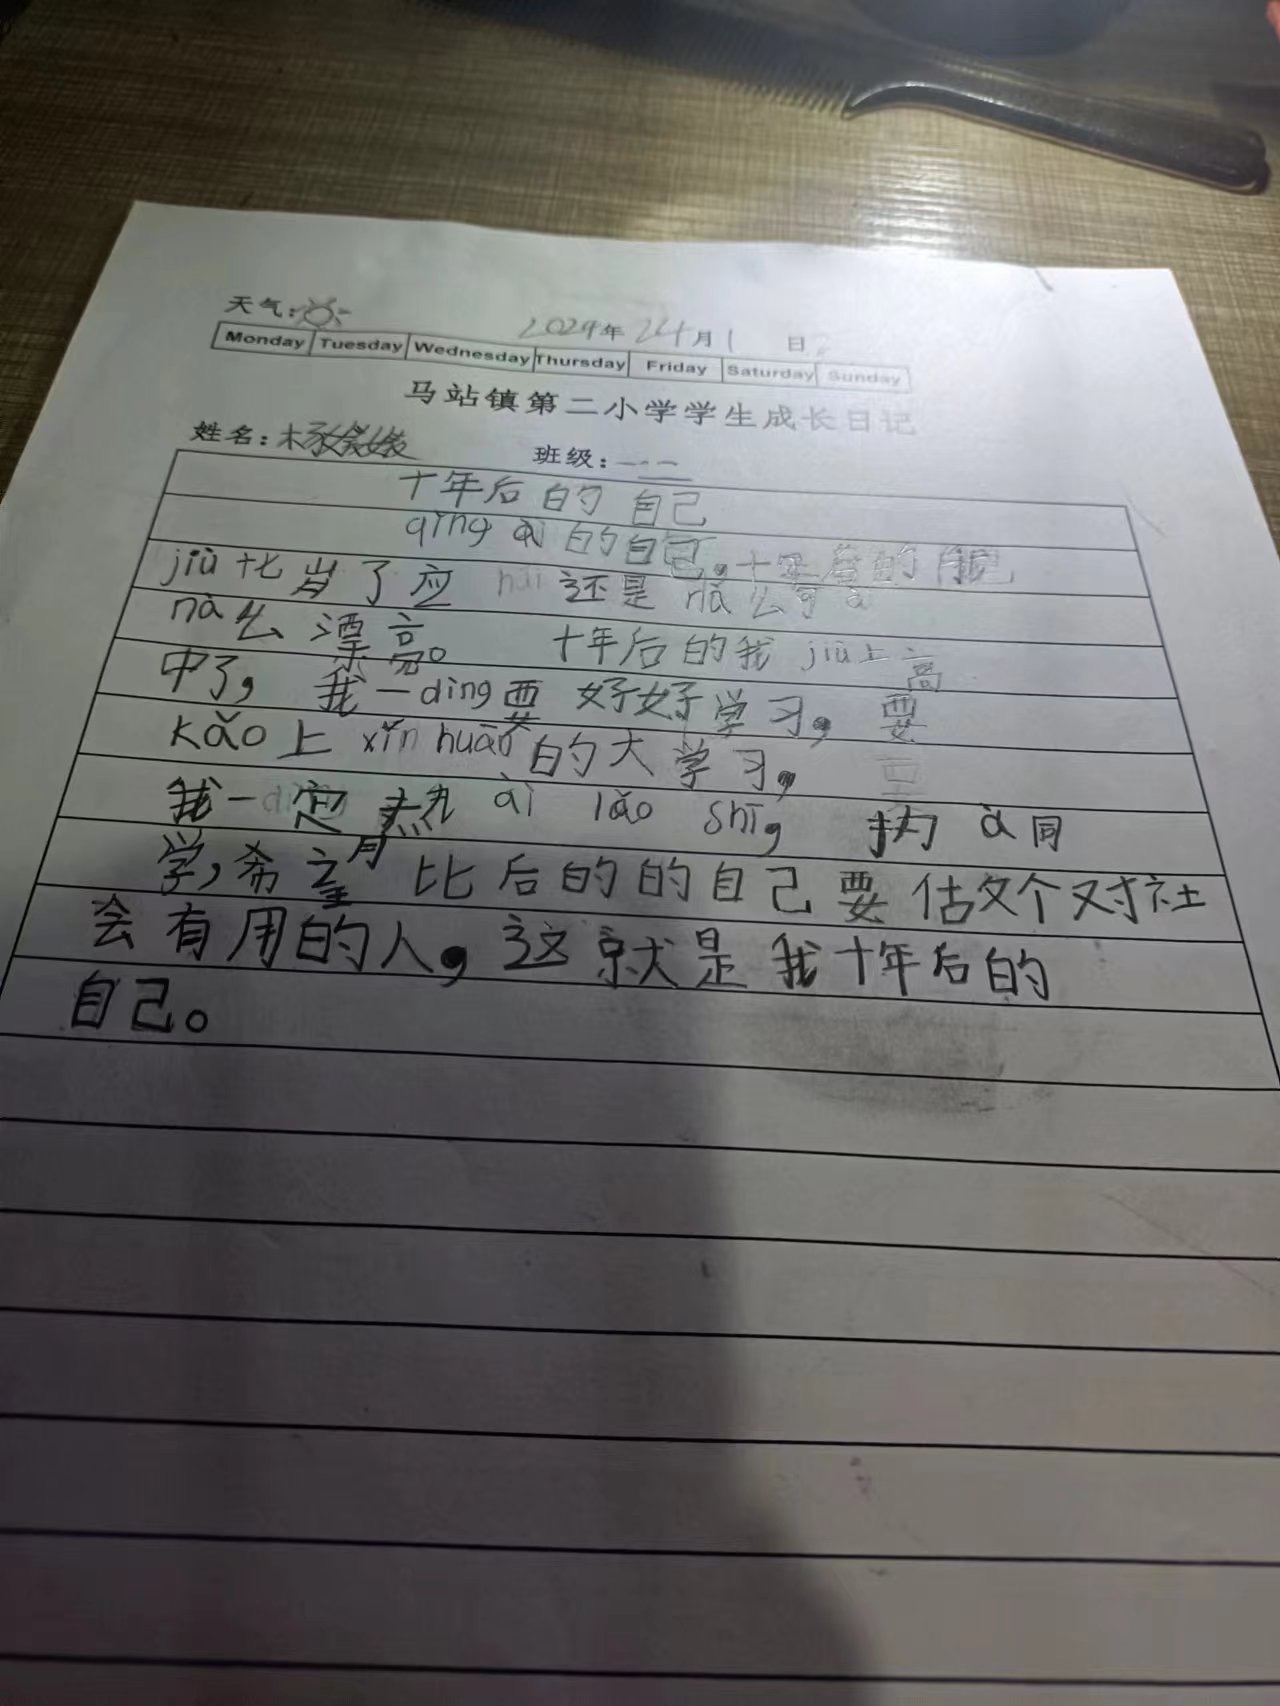 天气:
2024年 24月1 日
Monday Tuesday Wednesday Thursday Friday Saturday Sunday
马站镇第二小学学生成长日记
姓名: 班级: 一二
十年后的自己
qīng ài的自己。十年后的我
jiù 十七岁了应 hái 还是 nà么可ài
nà么漂亮。 十年后的我jiù上高
中了，我一dìng要好好学习，要
kǎo上xǐn huān的大学习，
我一定热ài lǎo shī，热ài同
学，希望 比后的的自己要估个对社
会有用的人，这就是我十年后的
自己。